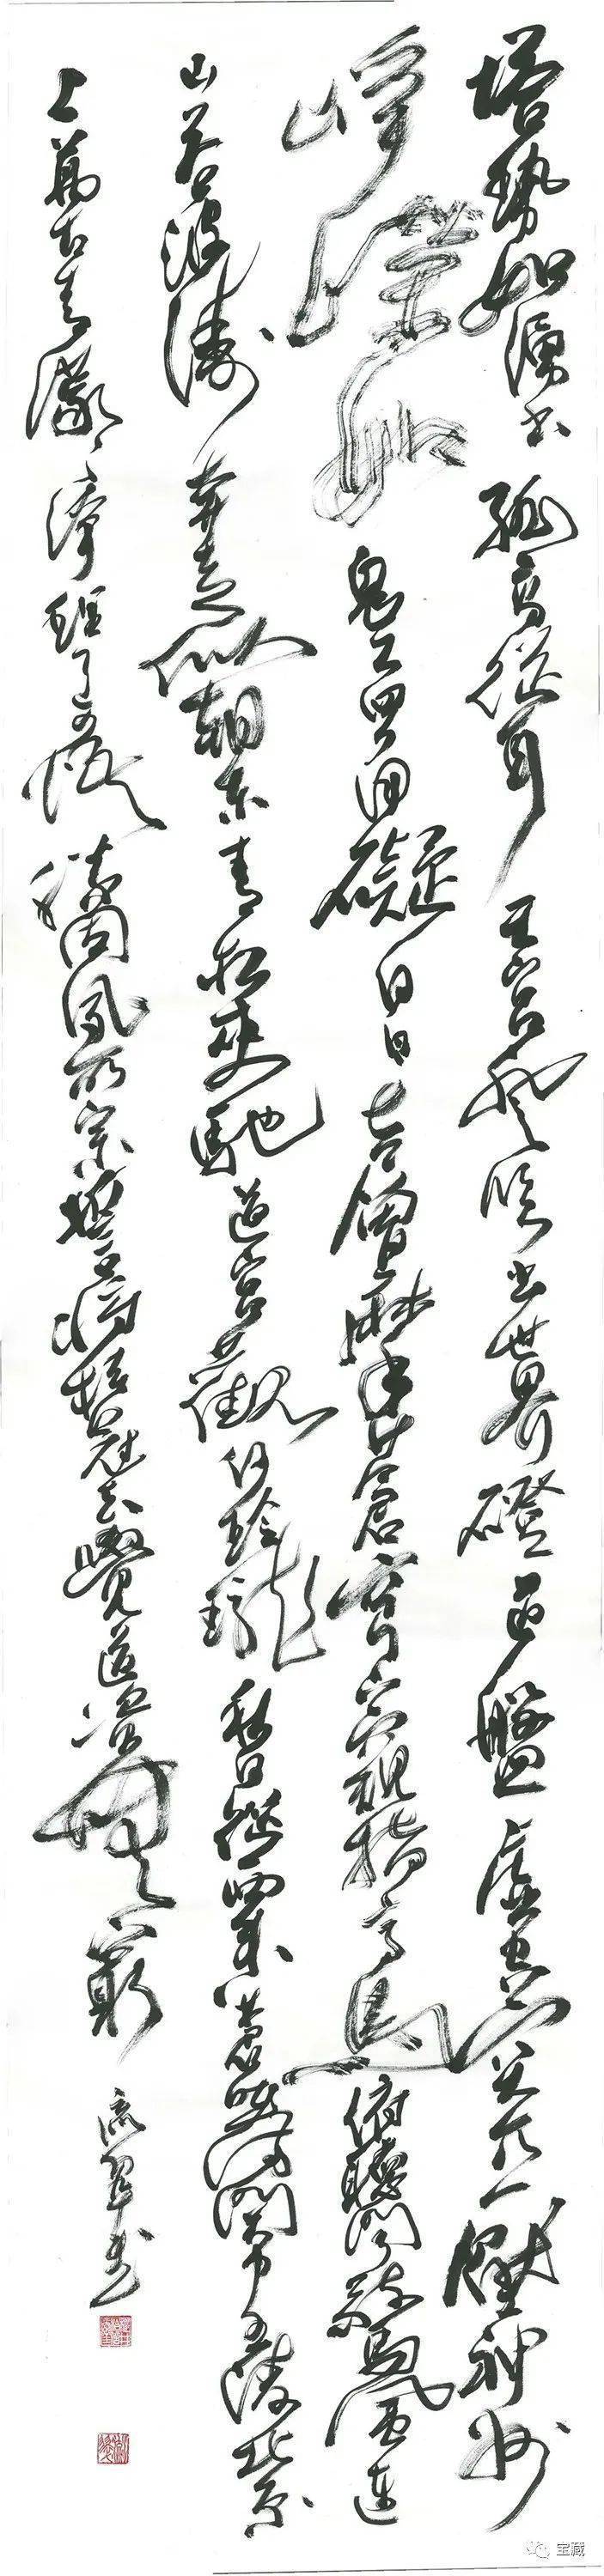 塔勢如湧出孤高聳天宮登臨出世界磴道盤虛空突兀壓神州
崢嶸如鬼工四角礙白日七層摩蒼穹下窺指高鳥俯聽聞驚風連
山若波濤奔走似朝東青松夾馳道宮觀何玲瓏秋色從西來蒼然滿關中五陵北原
上萬古青濛々淨理了可悟勝因夙所宗誓將掛冠去覺道資無窮
宝藏